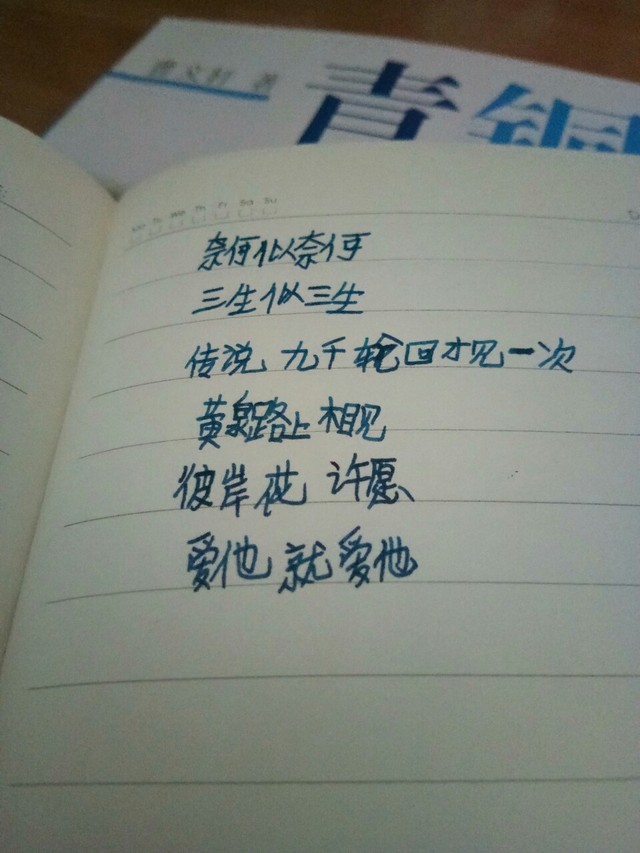 曹文轩 著
青铜
Mo Tu We Th Fr Sa Su
奈何似奈何
三生似三生
传说 九千轮回才见一次
黄泉路上 相见
彼岸花 许愿
爱他 就爱他